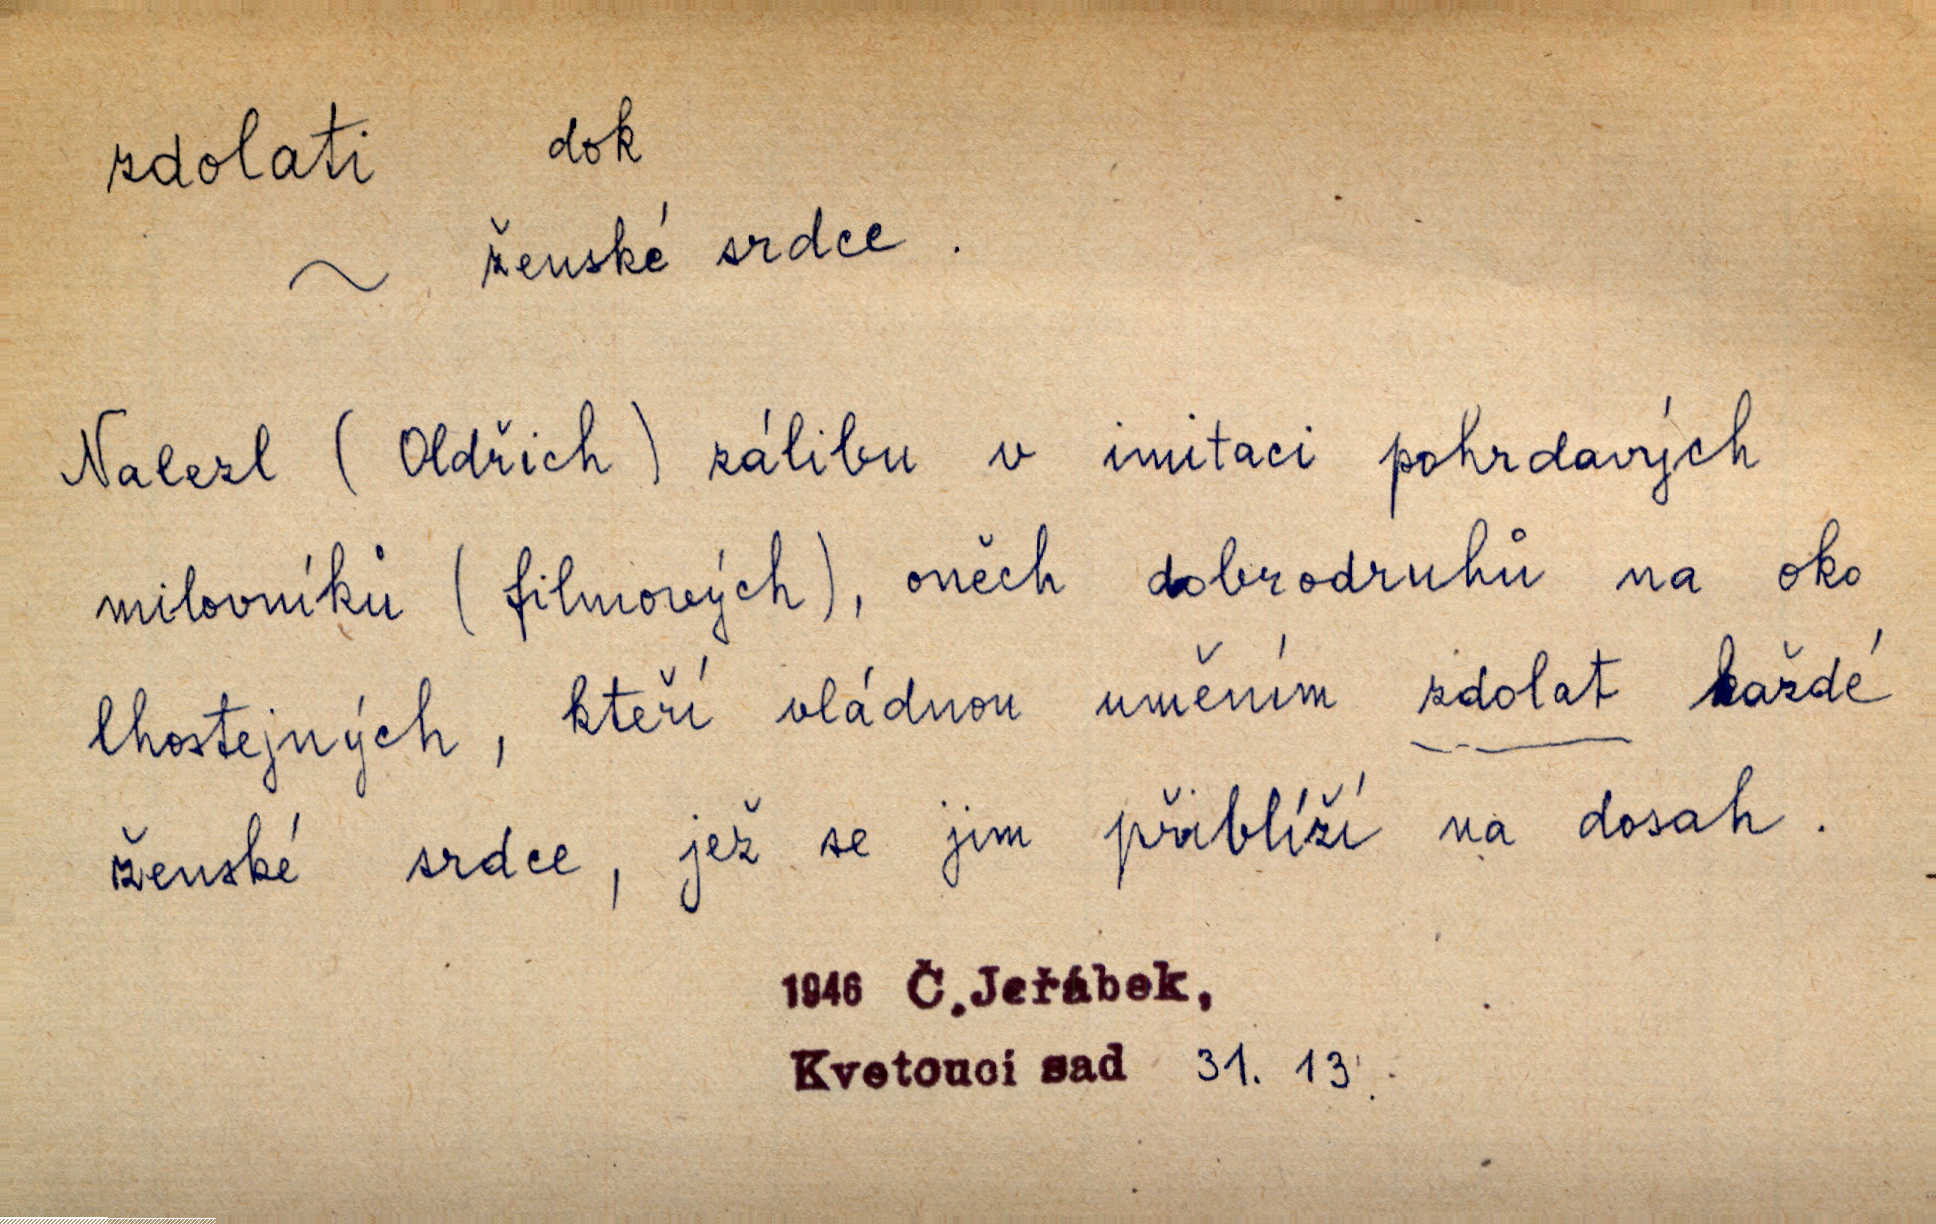 zdolati dok
~ ženské srdce .
Nalezl ( Oldřich ) zálibu v imitaci pohrdavých
milovníků ( filmových ), oněch dobrodruhů na oko
lhostejných , kteří vládnou uměním zdolat každé
ženské srdce , jež se jim přiblíží na dosah .
1946 Č.Jeřábek,
Kvetoucí sad 31. 13.